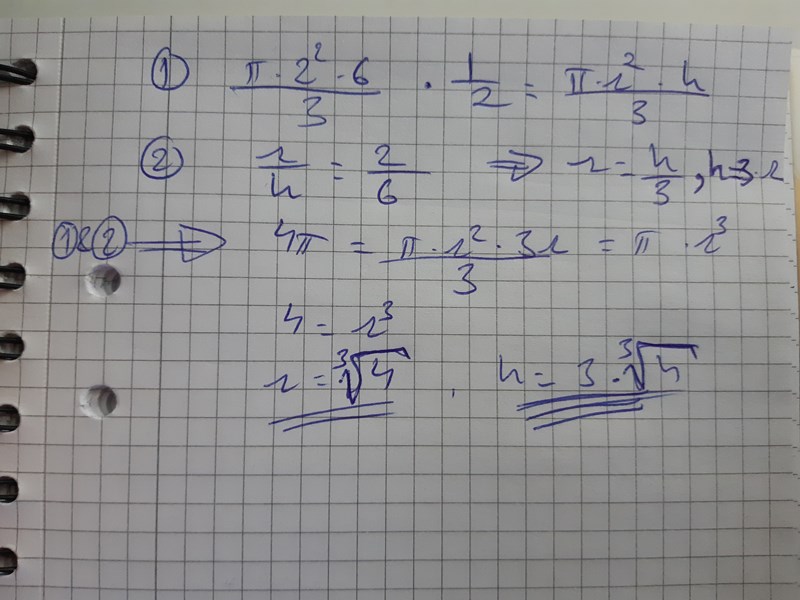 ① π · 2² · 6 / 3 · 1 / 2 = π · r² · h / 3
② r / h = 2 / 6 ⇒ r = h / 3 , h = 3 · r
①&② ⇒ 4π = π · r² · 3r / 3 = π · r³
4 = r³
r = ³√4 , h = 3 · ³√4